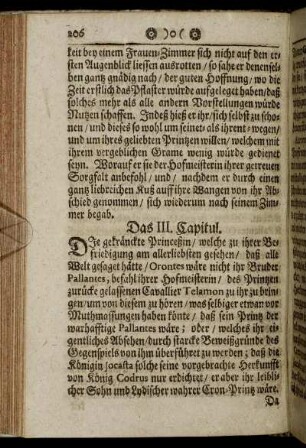 206
keit bey einem Frauen-Zimmer sich nicht auf den er-
sten Augenblick liessen ausrotten / so sahe er denensel-
ben gantz gnädig nach / der guten Hoffnung / wo die
Zeit erstlich das Pflaster würde aufgeleget haben / daß
solches mehr als alle andern Vorstellungen würde
Nutzen schaffen. Indeß hieß er ihr / sich selbst zu scho-
nen / und dieses so wohl um seinet- als ihrent-wegen /
und um ihres geliebten Printzen willen / welchem mit
ihrem vergeblichen Grame wenig würde gedienet
seyn. Worauf er sie der Hofmeisterin ihrer getreuen
Sorgfalt anbefohl / und / nachdem er durch einen
gantz liebreichen Kuß auff ihre Wangen von ihr Ab-
schied genommen / sich wiederum nach seinem Zim-
mer begab.
Das III. Capitul.
DIe gekränckte Princeßin / welche zu ihrer Be-
friedigung am allerliebsten gesehen / daß alle
Welt gesaget hätte / Orontes wäre nicht ihr Bruder
Pallantes, befahl ihrer Hofmeisterin / des Printzen
zurücke gelassenen Cavallier Telamon zu ihr zu brin-
gen / um von diesem zu hören / was selbiger etwan vor
Muthmassungen haben könte / daß sein Printz der
warhafftige Pallantes wäre; oder / welches ihr ei-
gentliches Absehen / durch starcke Beweißgründe des
Gegenspiels von ihm überführet zu werden; daß die
Königin Jocasta solche seine vorgebrachte Herkunfft
von König Codrus nur erdichtet / er aber ihr leibli-
cher Sohn und Lydischer wahrer Cron-Printz wäre.
Da